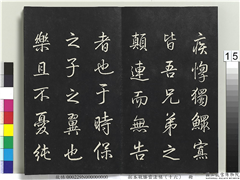 疾惸獨鰥寡
皆吾兄弟之
顛連而無告
者也于時保
之子之翼也
樂且不憂純
15